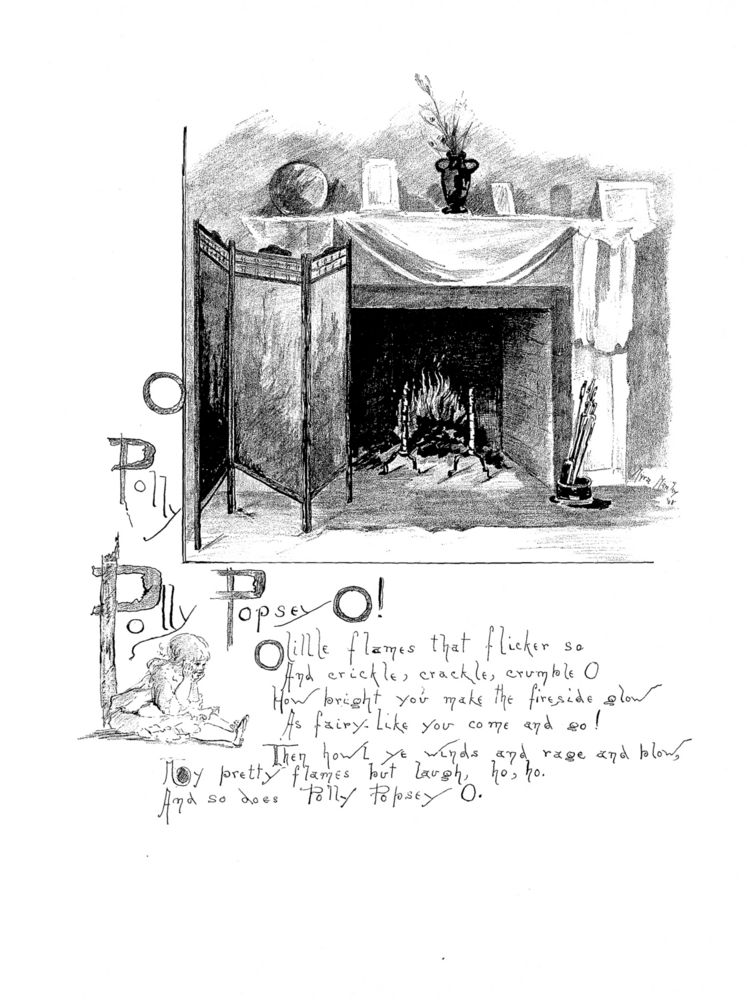 O
Polly
Polly Popsey O!
O little flames that flicker so
And crickle, crackle, crumble O
How bright you make the fireside glow
As fairy-like you come and go!
Then howl ye winds and rage and blow,
My pretty flames but laugh, ho, ho.
And so does Polly Popsey O.